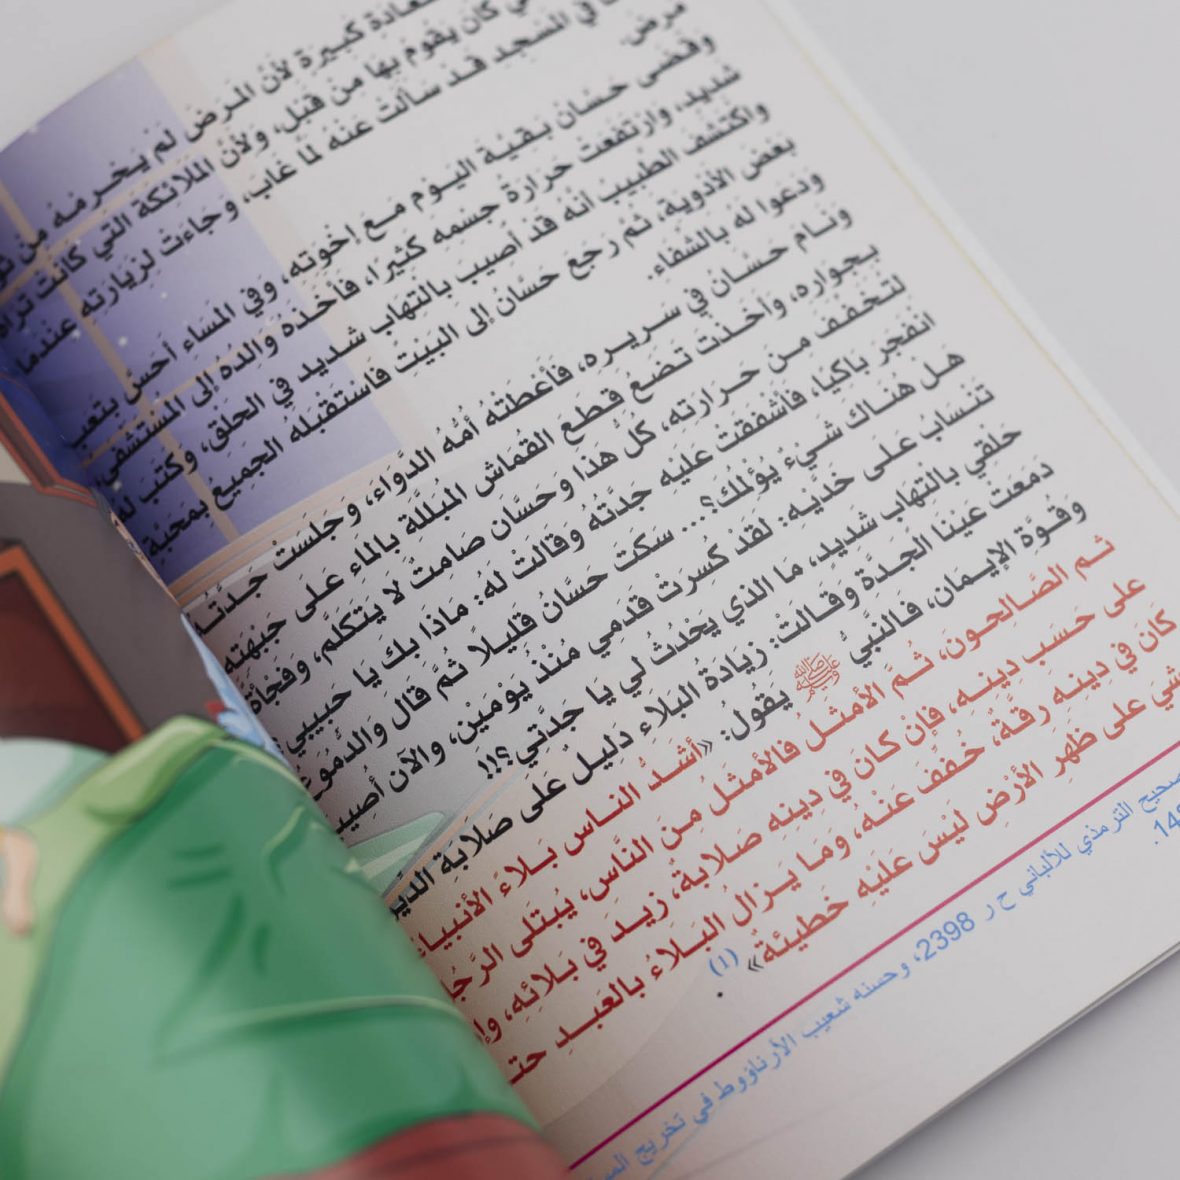 سعادة كبيرة لأنّ المرَضَ لَمْ يَحْرِمْهُ مِنْ
كانَ يقومُ بها منْ قبْل، ولأنّ الملائكة التي كانَتْ تراهُ
في المسْجِد قدْ سَألَتْ عَنْهُ لما غَاب، وجاءَتْ لزيارتِهِ عندَما
مرض.
وقضى حَسّان بَقيّة اليَوْم مَعَ إخوَته، وفي المسَاء أحَسَّ بتَعَب
شديد، وارْتَفَعتْ حَرارةُ جسْمه كَثِيرًا، فأخذه والدُه إلى المسْتَشفى،
واكْتَشفَ الطبيبُ أنّهُ قدْ أصيبَ بالتهَاب شديد في الحَلْق، وكتَبَ له
بَعْضَ الأدْوية، ثُمَّ رَجَع حسَّانُ إلى البَيْت فاستَقْبَله الجَميعُ بمَحَبّة
ودَعوا لَه بالشفاء.
ونَام حَسّانُ في سَريره، فَأعْطَتهُ أُمّهُ الدّواء، وجَلسَتْ جَدّتهُ
بجِواره، وأخَذَتْ تضَعُ قطَعَ القُماش المُبللَة بالماء على جَبْهَته
لتخفّفَ منَ حَرارَته، كلّ هذا وحَسَّان صامتٌ لا يَتكلَّم، وفَجأةً
انفَجَر باكيًا، فأشفَقتْ عليه جَدّتُه وقالتْ له: مَاذا بك يَا حبيبي
هَل هنَاك شيْءٌ يُؤْلمك؟... سَكتَ حسَّانُ قليلًا ثُمَّ قَال والدّموعُ
تنْسابُ على خدَّيه: لقدْ كُسِرَتْ قدمي مُنْذُ يَوْمين، والآن أُصِيبَ
حَلْقي بالتهابٍ شديدٍ، ما الذي يَحْدُثُ لي يَا جدَّتي؟!!
دمَعتْ عينا الجدّة وقالتْ: زيَادةُ البَلاء دَليلٌ على صَلابَة الدِّين
وقوّة الإيمَان، فَالنبيُّ ﷺ يقولُ: «أشدّ الناس بَلاءً الأنبياء
ثم الصَّالحون، ثُمَّ الأمْثلُ فالأمثل منَ النَّاس، يُبتَلى الرَّجُل
على حَسَب دينِه، فإنْ كانَ في دينِه صَلابةٌ، زيدَ في بَلائِه، وإن
كَان في دينِه رقّةٌ، خُففَ عَنْهُ، ومَا يزالُ البَلاءُ بالعَبد حتى
على ظَهرِ الأرْض ليْسَ عَليه خَطيئةٌ» (1).
صحيح الترمذي للألباني ح ر 2398، وحسنه شعيب الأرناؤوط في تخريج